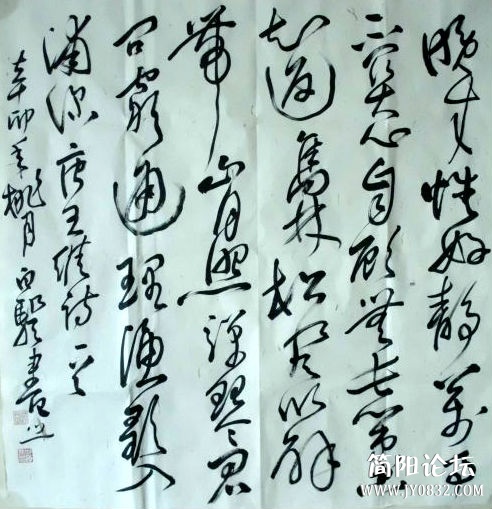 晚年惟好靜萬事
不關心自顧無長策空
知返舊林松風吹解
帶山月照彈琴君
問窮通理漁歌入
浦深唐王維詩一首
辛卯年桃月
简阳论坛
www.JY0832.COM